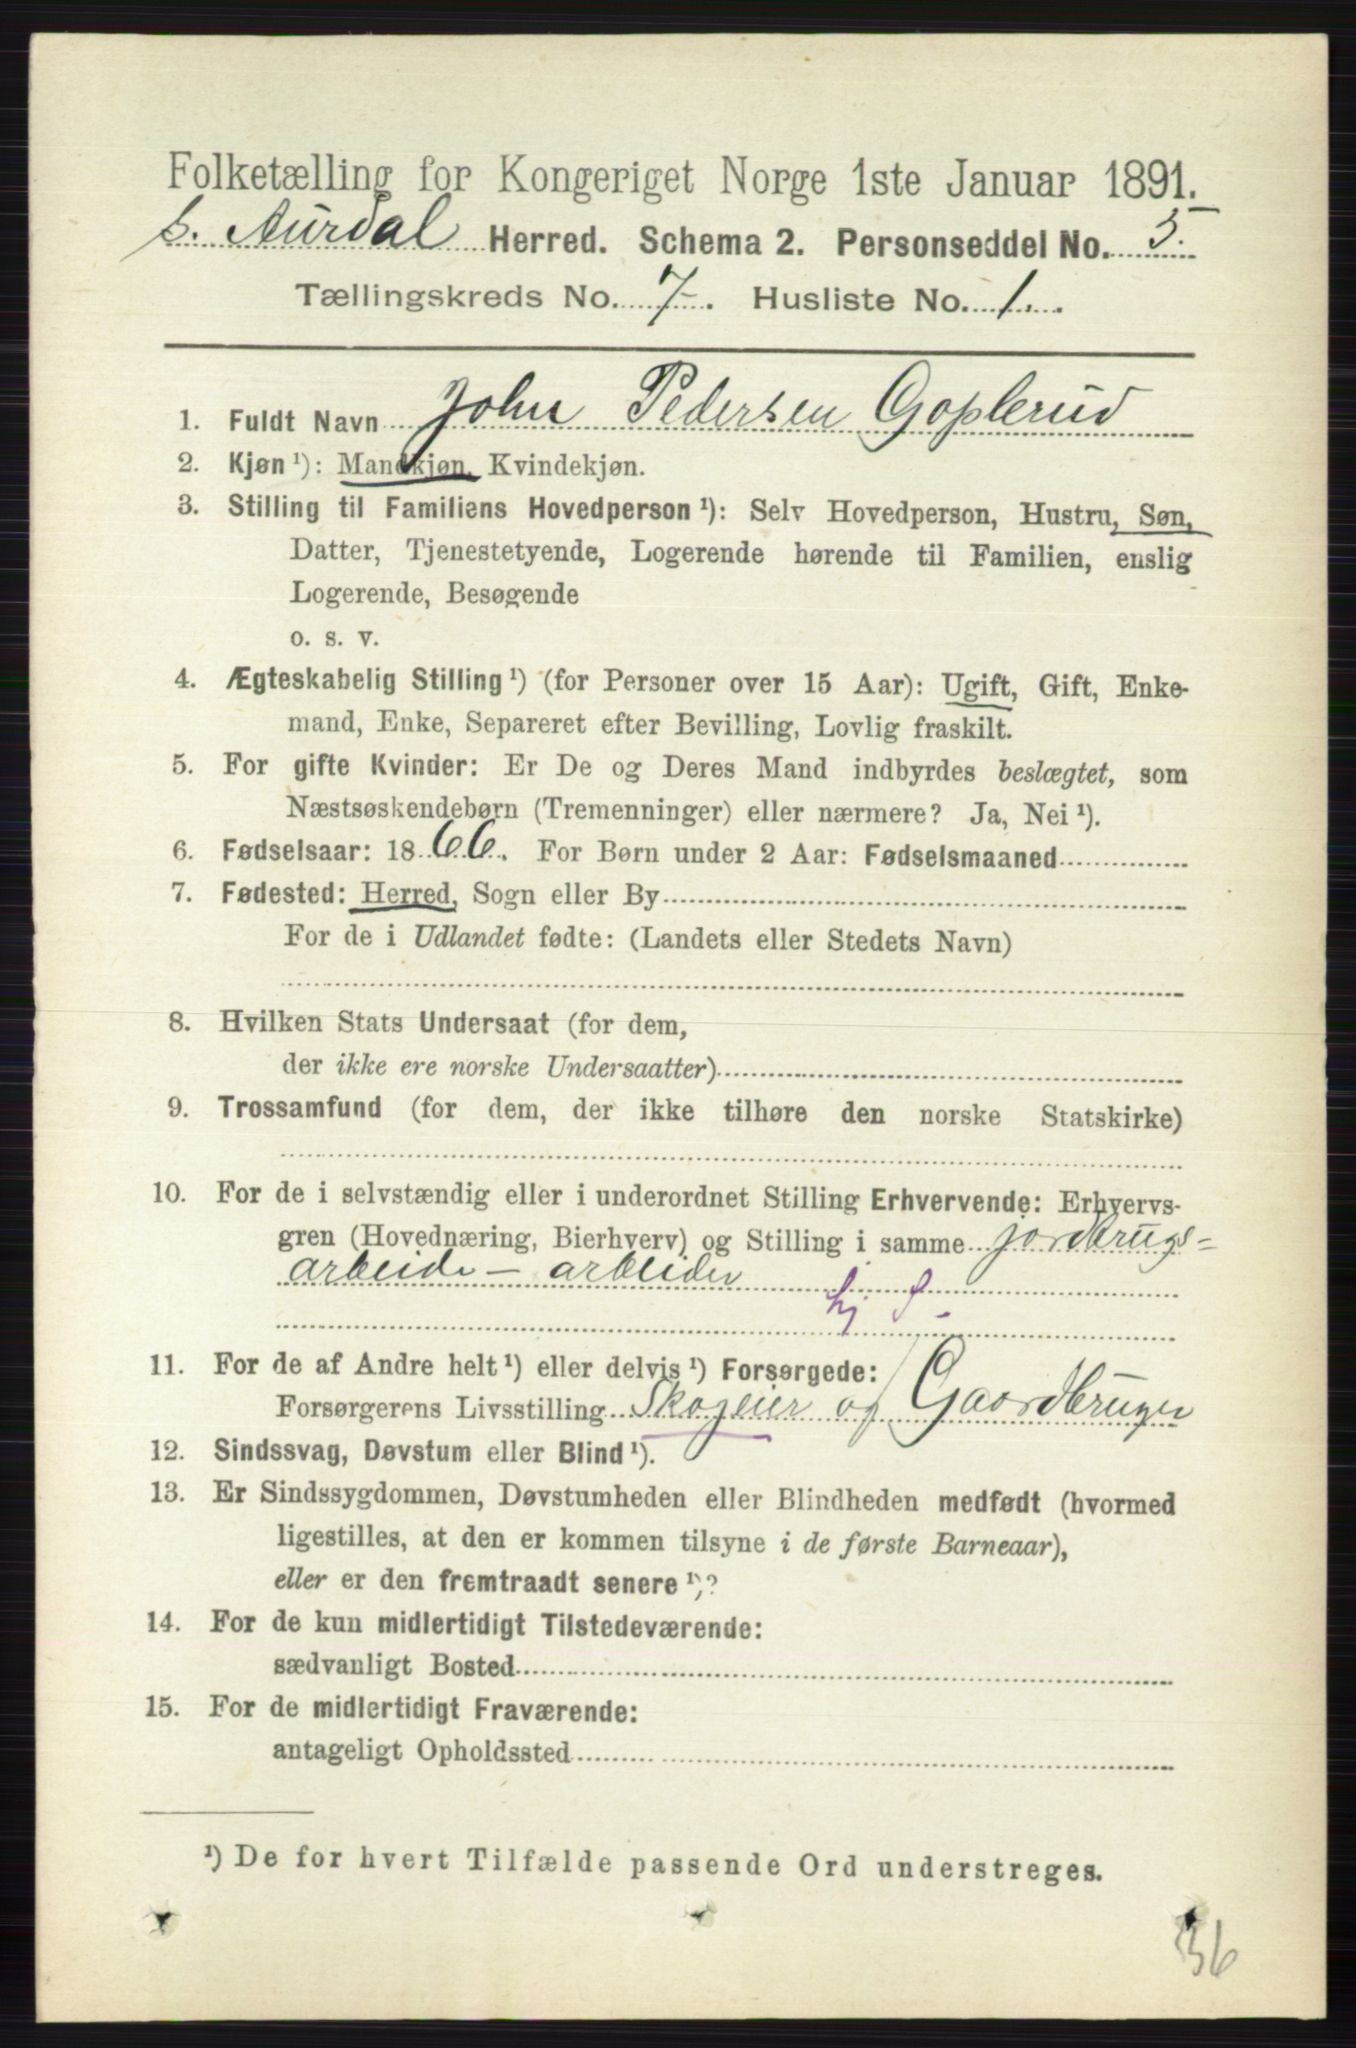 Folketælling for Kongeriget Norge 1ste Januar 1891.
S. Aurdal Herred. Schema 2. Personseddel No. 5.
Tællingskreds No. 7. Husliste No. 1.
1. Fuldt Navn John Pedersen Goplerud
2. Kjøn ¹): Mandkjøn, Kvindekjøn.
3. Stilling til Familiens Hovedperson ¹): Selv Hovedperson, Hustru, Søn,
Datter, Tjenestetyende, Logerende hørende til Familien, enslig
Logerende, Besøgende
o. s. v.
4. Ægteskabelig Stilling ¹) (for Personer over 15 Aar): Ugift, Gift, Enke-
mand, Enke, Separeret efter Bevilling, Lovlig fraskilt.
5. For gifte Kvinder: Er De og Deres Mand indbyrdes beslægtet, som
Næstsøskendebørn (Tremenninger) eller nærmere? Ja, Nei ¹).
6. Fødselsaar: 1866. For Børn under 2 Aar: Fødselsmaaned
7. Fødested: Herred, Sogn eller By
For de i Udlandet fødte: (Landets eller Stedets Navn)
8. Hvilken Stats Undersaat (for dem,
der ikke ere norske Undersaatter)
9. Trossamfund (for dem, der ikke tilhøre den norske Statskirke)
10. For de i selvstændig eller i underordnet Stilling Erhvervende: Erhvervs-
gren (Hovednæring, Bierhverv) og Stilling i samme jordbrugs=
arbeide - arbeider
hj
11. For de af Andre helt ¹) eller delvis ¹) Forsørgede:
Forsørgerens Livsstilling Skogeier og Gaardbruger
12. Sindssvag, Døvstum eller Blind ¹).
13. Er Sindssygdommen, Døvstumheden eller Blindheden medfødt (hvormed
ligestilles, at den er kommen tilsyne i de første Barneaar),
eller er den fremtraadt senere ¹)?
14. For de kun midlertidigt Tilstedeværende:
sædvanligt Bosted
15. For de midlertidigt Fraværende:
antageligt Opholdssted
¹) De for hvert Tilfælde passende Ord understreges.
36